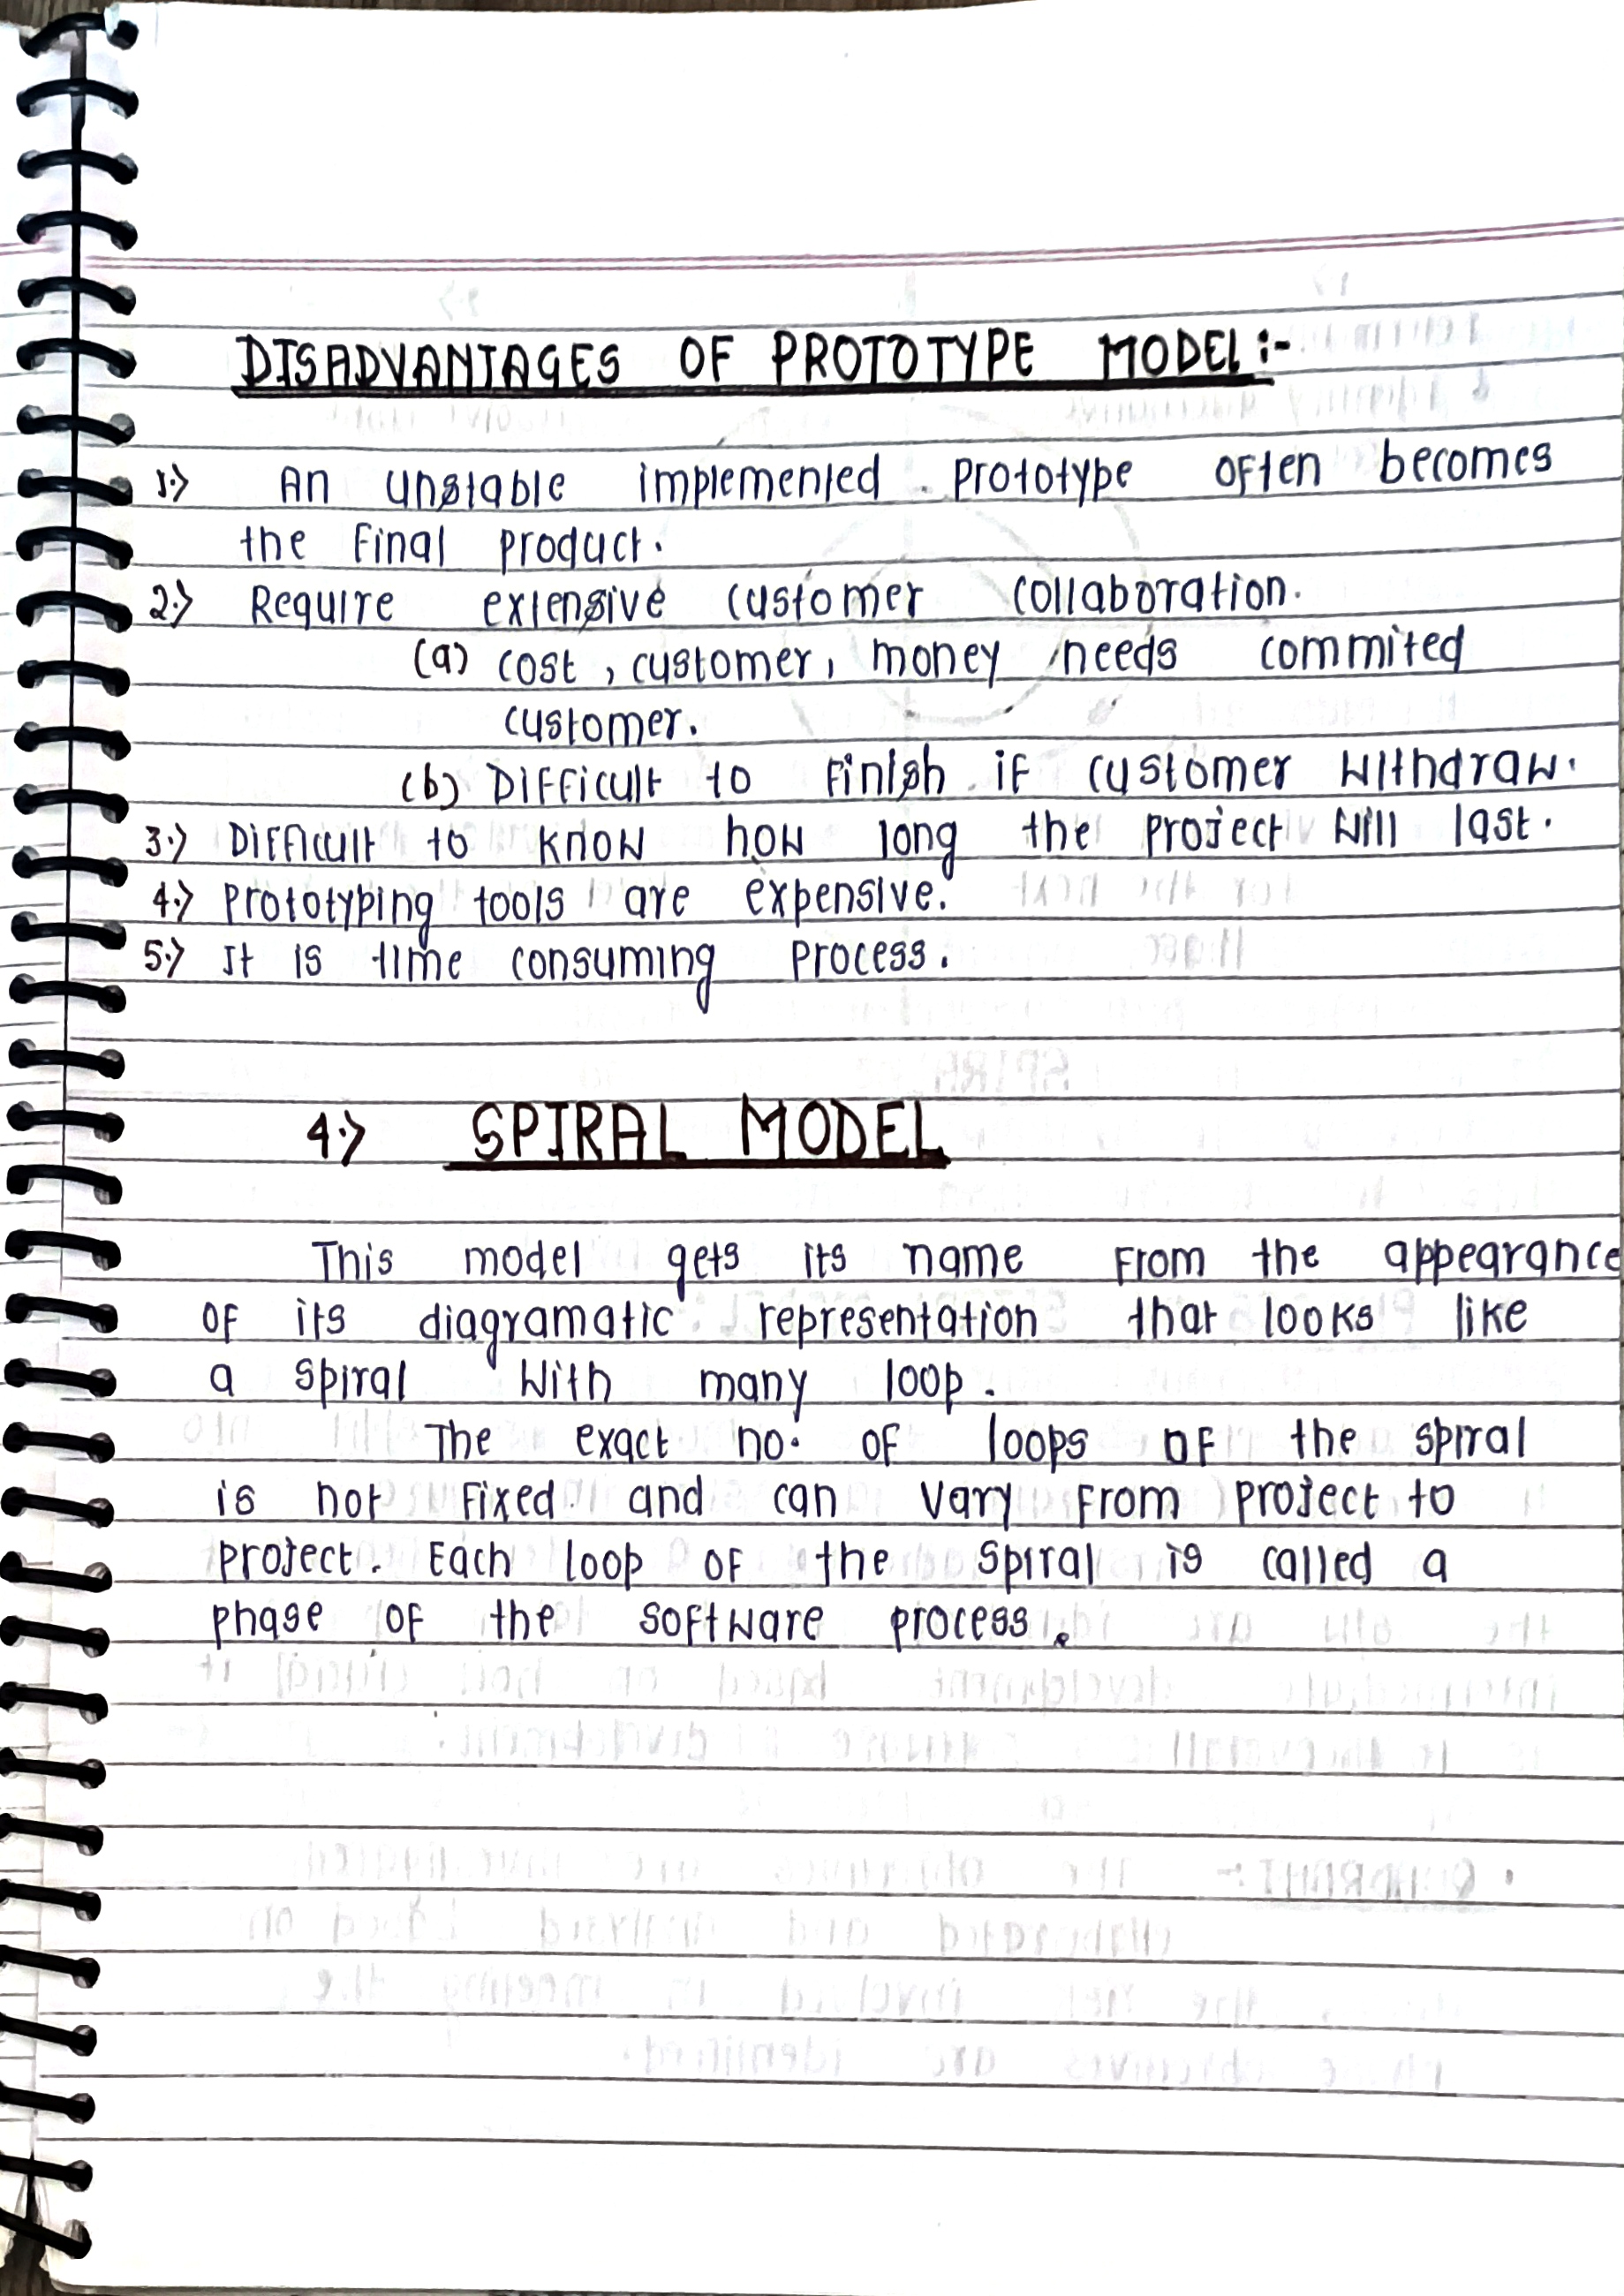 DISADVANTAGES OF PROTOTYPE MODEL :-
1.) An unstable implemented prototype often becomes
the final product.
2.) Require extensive customer collaboration.
(a) cost, customer, money needs commited
customer.
(b) Difficult to finish if customer withdraw.
3.) Difficult to know how long the project will last.
4.) Prototyping tools are expensive.
5.) It is time consuming process.
4.) SPIRAL MODEL
This model gets its name from the appearance
of its diagramatic representation that looks like
a spiral with many loop.
The exact no. of loops of the spiral
is not fixed and can vary from project to
project. Each loop of the spiral is called a
phase of the software process.